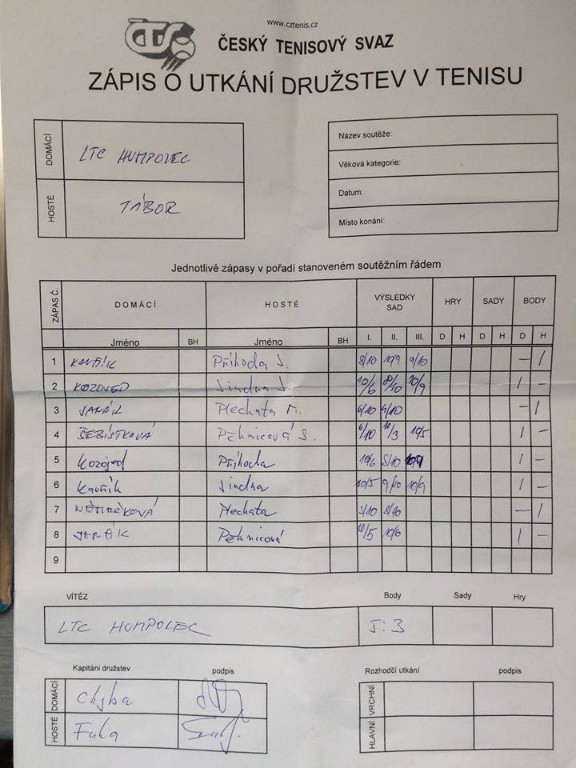 www.cztenis.cz
ČTS
ČESKÝ TENISOVÝ SVAZ
ZÁPIS O UTKÁNÍ DRUŽSTEV V TENISU
DOMÁCÍ LTC HUMPOLEC
HOSTÉ TÁBOR
Název soutěže:
Věková kategorie:
Datum:
Místo konání:
Jednotlivé zápasy v pořadí stanoveném soutěžním řádem
ZÁPAS Č. DOMÁCÍ HOSTÉ VÝSLEDKY SAD HRY SADY BODY
Jméno BH Jméno BH I. II. III. D H D H D H
1 KAVŘÍK Příhoda J. 8/10 10/9 9/10 – 1
2 KOZOJED Jindra J. 10/6 8/10 10/9 1 –
3 JANÁK Plechata M. 6/10 4/10 – 1
4 ŠEBISTKOVÁ Pěknicová S. 6/10 10/3 11/5 1 –
5 Kozojed Příhoda 10/6 5/10 10/9 1 –
6 Kavřík Jindra 10/5 9/10 10/9 1 –
7 Plechata 5/10 – 1
8 Pěknicová 10/5 10/6 1 –
9
VÍTĚZ Body Sady Hry
LTC HUMPOLEC 5:3
Kapitáni družstev podpis Rozhodčí utkání podpis
DOMÁCÍ Chyba VRCHNÍ
HOSTÉ Fuka HLAVNÍ